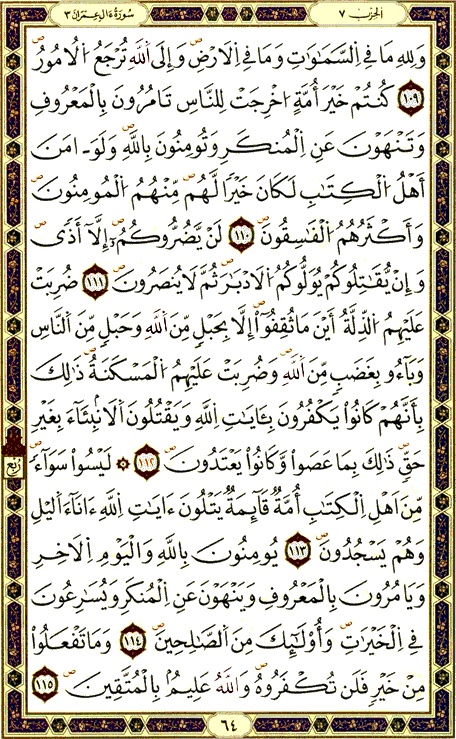 الحزب ٧
سورة ءال عمران ٣
وَلِلهِ مَا فِے اِلسَّمَٰوَٰتِ وَمَا فِے اِلَارْضِۖ وَإِلَى اَللَّهِ تُرْجَعُ اُلُامُورُۖ
١٠٩ كُنتُمْ خَيْرَ أُمَّةٍ اُخْرِجَتْ لِلنَّاسِ تَامُرُونَ بِالْمَعْرُوفِ
وَتَنْهَوْنَ عَنِ اِلْمُنكَرِ وَتُومِنُونَ بِاللَّهِۖ وَلَوَ اٰمَنَ
أَهْلُ اُلْكِتَٰبِ لَكَانَ خَيْراٗ لَّهُمۖ مِّنْهُمُ اُلْمُومِنُونَۖ
وَأَكْثَرُهُمُ اُلْفَٰسِقُونَۖ ١١٠ لَنْ يَّضُرُّوكُمُۥٓ إِلَّآ أَذىٗۖ
وَإِنْ يُّقَٰتِلُوكُمْ يُوَلُّوكُمُ اُلَادْبَٰرَۖ ثُمَّ لَا يُنصَرُونَۖ ١١١ ضُرِبَتْ
عَلَيْهِمُ اُلذِّلَّةُ أَيْنَ مَا ثُقِفُوٓاْۖ إِلَّا بِحَبْلٖ مِّنَ اَللَّهِ وَحَبْلٖ مِّنَ اَلنَّاسِۖ
وَبَآءُو بِغَضَبٖ مِّنَ اَللَّهِۖ وَضُرِبَتْ عَلَيْهِمُ اُلْمَسْكَنَةُۖ ذَٰلِكَ
بِأَنَّهُمْ كَانُواْ يَكْفُرُونَ بِـَٔايَٰتِ اِللَّهِ وَيَقْتُلُونَ اَلَانۢبِـَٔآءَ بِغَيْرِ
حَقّٖۖ ذَٰلِكَ بِمَا عَصَواْ وَّكَانُواْ يَعْتَدُونَۖ ١١٢ ۞ لَيْسُواْ سَوَآءٗۖ
مِّنَ اَهْلِ اِلْكِتَٰبِ أُمَّةٞ قَآئِمَةٞ يَتْلُونَ ءَايَٰتِ اِللَّهِ ءَانَآءَ اَليْلِ
وَهُمْ يَسْجُدُونَۖ ١١٣ يُومِنُونَ بِاللَّهِ وَالْيَوْمِ اِلَاخِرِ
وَيَامُرُونَ بِالْمَعْرُوفِ وَيَنْهَوْنَ عَنِ اِلْمُنكَرِ وَيُسَٰرِعُونَ
فِے اِلْخَيْرَٰتِۖ وَأُوْلَٰٓئِكَ مِنَ اَلصَّٰلِحِينَۖ ١١٤ وَمَا تَفْعَلُواْ
مِنْ خَيْرٖ فَلَن تُكْفَرُوهُۖ وَاللَّهُ عَلِيمُۢ بِالْمُتَّقِينَۖ ١١٥
ربع
٦٤